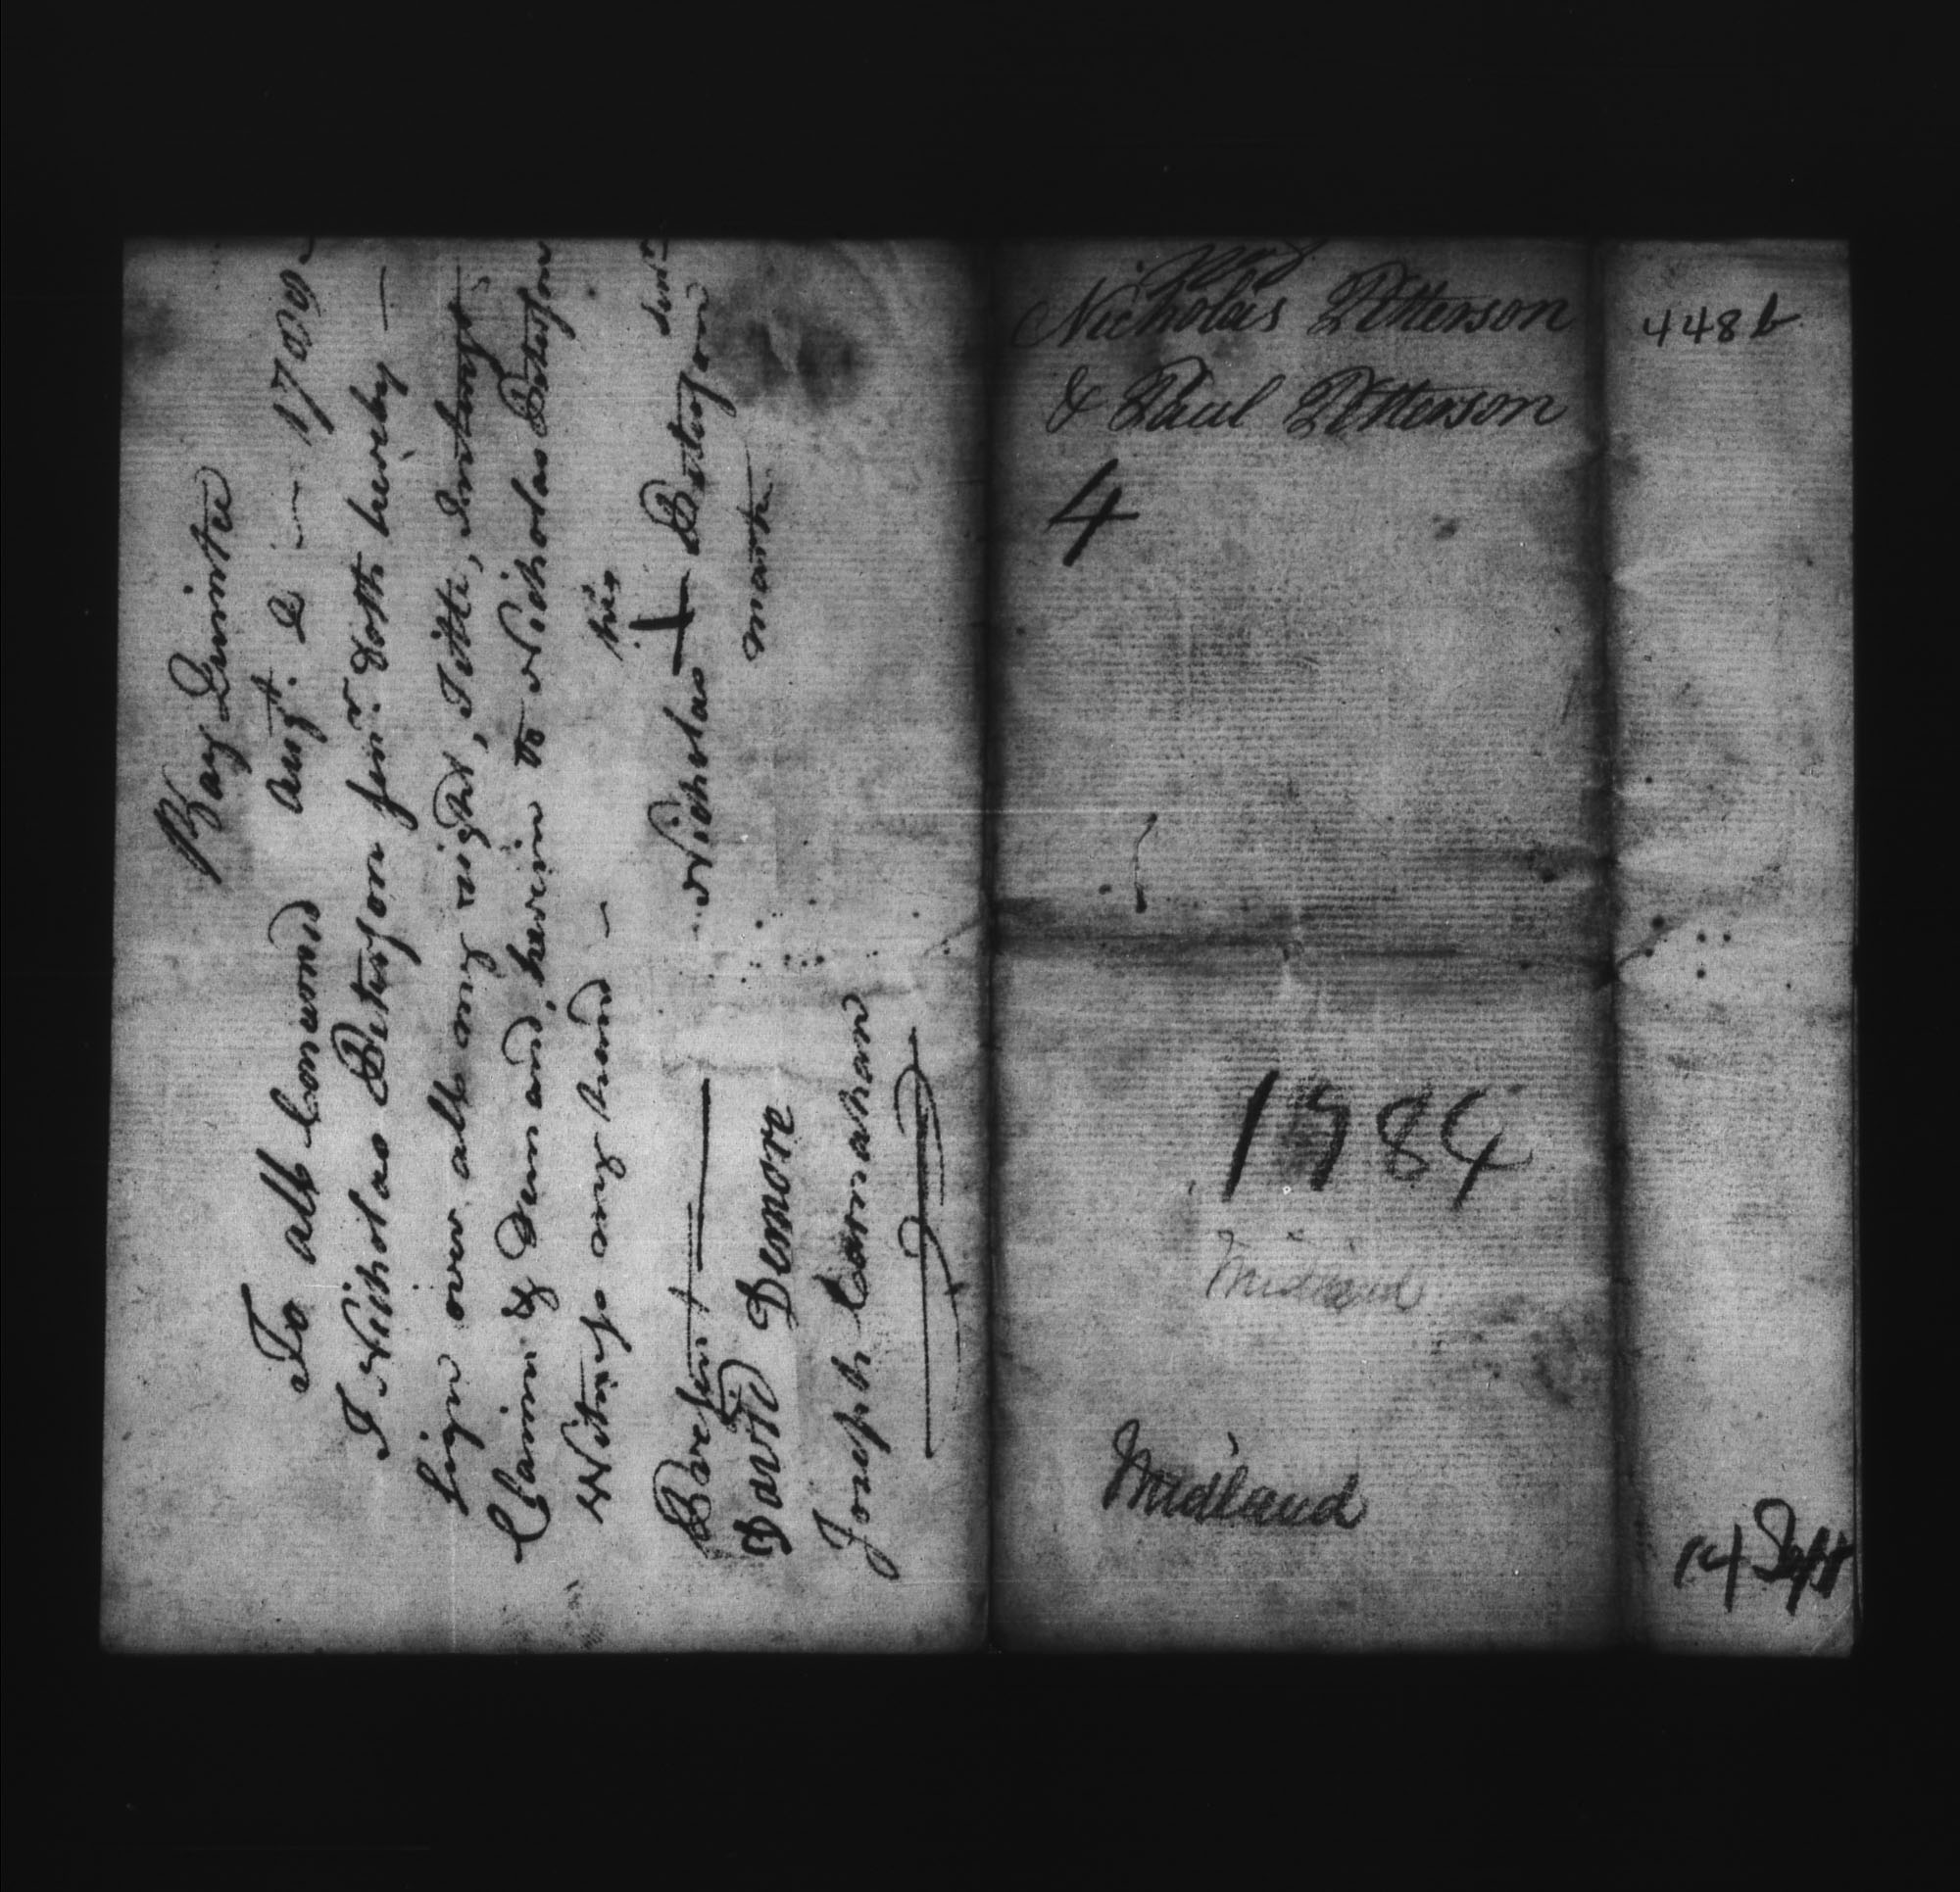 Bay Quinte
Augt. 2 — 1789 —
To all Concernd
I Nicholas Peterson senr. doth hereby —
sign over all my right, Title, Interest
Claim & Demand, herein to Nicholas Peterson
Witness my hand —
his
Nicholas + Peterson senr
mark
Present —
David Demore
Joseph Carnahan
Nicholas Petterson
& Paul Petterson
4
1784
Midland
Midland
448 b
14 Sept